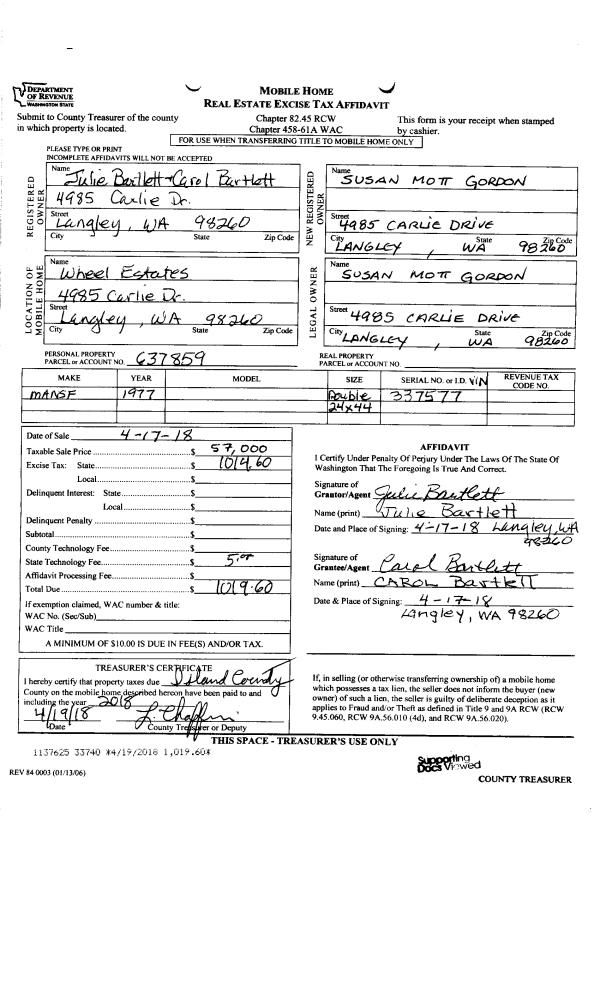 DEPARTMENT
OF REVENUE
WASHINGTON STATE
MOBILE HOME
REAL ESTATE EXCISE TAX AFFIDAVIT
Submit to County Treasurer of the county
in which property is located.
Chapter 82.45 RCW
Chapter 458-61A WAC
This form is your receipt when stamped
by cashier.
FOR USE WHEN TRANSFERRING TITLE TO MOBILE HOME ONLY
PLEASE TYPE OR PRINT
INCOMPLETE AFFIDAVITS WILL NOT BE ACCEPTED
REGISTERED OWNER
Name Julie Bartlett + Carol Bartlett
4985 Carlie Dr.
Street
Langley, WA 98260
City State Zip Code
NEW REGISTERED OWNER
Name
SUSAN MOTT GORDON
Street 4985 CARLIE DRIVE
City State Zip Code
LANGLEY, WA 98260
LOCATION OF MOBILE HOME
Name
Wheel Estates
4985 Carlie Dr.
Street
Langley, WA 98260
City State Zip Code
LEGAL OWNER
Name
SUSAN MOTT GORDON
Street 4985 CARLIE DRIVE
City State Zip Code
LANGLEY, WA 98260
PERSONAL PROPERTY
PARCEL or ACCOUNT NO. 637859
REAL PROPERTY
PARCEL or ACCOUNT NO.
MAKE YEAR MODEL SIZE SERIAL NO. or I.D. VIN REVENUE TAX CODE NO.
MANSF 1977 Double 337577
24x44
Date of Sale 4-17-18
Taxable Sale Price $ 57,000
Excise Tax: State $ 1014.60
Local $
Delinquent Interest: State $
Local $
Delinquent Penalty $
Subtotal $
County Technology Fee $
State Technology Fee $ 5.00
Affidavit Processing Fee $
Total Due $ 1019.60
If exemption claimed, WAC number & title:
WAC No. (Sec/Sub)
WAC Title
A MINIMUM OF $10.00 IS DUE IN FEE(S) AND/OR TAX.
AFFIDAVIT
I Certify Under Penalty Of Perjury Under The Laws Of The State Of
Washington That The Foregoing Is True And Correct.
Signature of
Grantor/Agent Julie Bartlett
Name (print) Julie Bartlett
Date and Place of Signing: 4-17-18 Langley, WA
98260
Signature of
Grantee/Agent Carol Bartlett
Name (print) CAROL Bartlett
Date & Place of Signing: 4-17-18
Langley, WA 98260
TREASURER'S CERTIFICATE
I hereby certify that property taxes due Island County
County on the mobile home described hereon have been paid to and
including the year 2018
4/19/18 L. Chaffin
Date County Treasurer or Deputy
If, in selling (or otherwise transferring ownership of) a mobile home
which possesses a tax lien, the seller does not inform the buyer (new
owner) of such a lien, the seller is guilty of deliberate deception as it
applies to Fraud and/or Theft as defined in Title 9 and 9A RCW (RCW
9.45.060, RCW 9A.56.010 (4d), and RCW 9A.56.020).
THIS SPACE - TREASURER'S USE ONLY
1137625 33740 *4/19/2018 1,019.60*
Supporting
Docs Viewed
REV 84 0003 (01/13/06)
COUNTY TREASURER